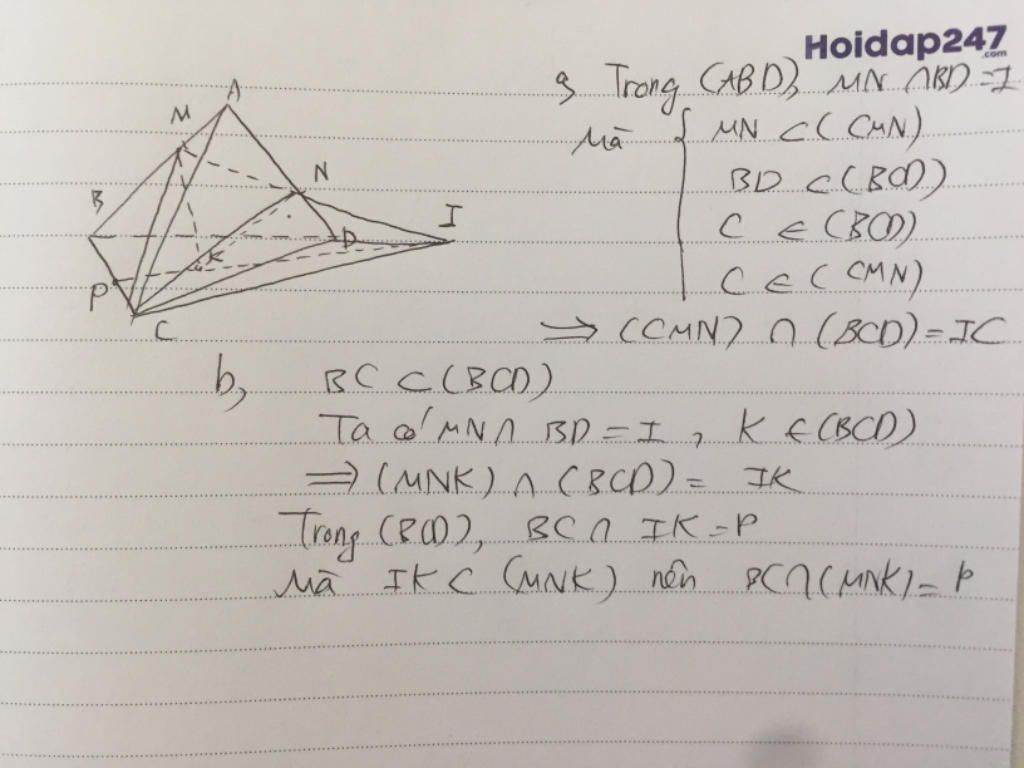 Hoidap247
.com
a, Trong (ABD), MN ∩ BD = I
Mà { MN ⊂ (CMN)
BD ⊂ (BCD)
C ∈ (BCD)
C ∈ (CMN)
⇒ (CMN) ∩ (BCD) = IC
A
M
N
B
I
D
K
P
C
b, BC ⊂ (BCD)
Ta có MN ∩ BD = I , K ∈ (BCD)
⇒ (MNK) ∩ (BCD) = IK
Trong (BCD), BC ∩ IK = P
Mà IK ⊂ (MNK) nên BC ∩ (MNK) = P